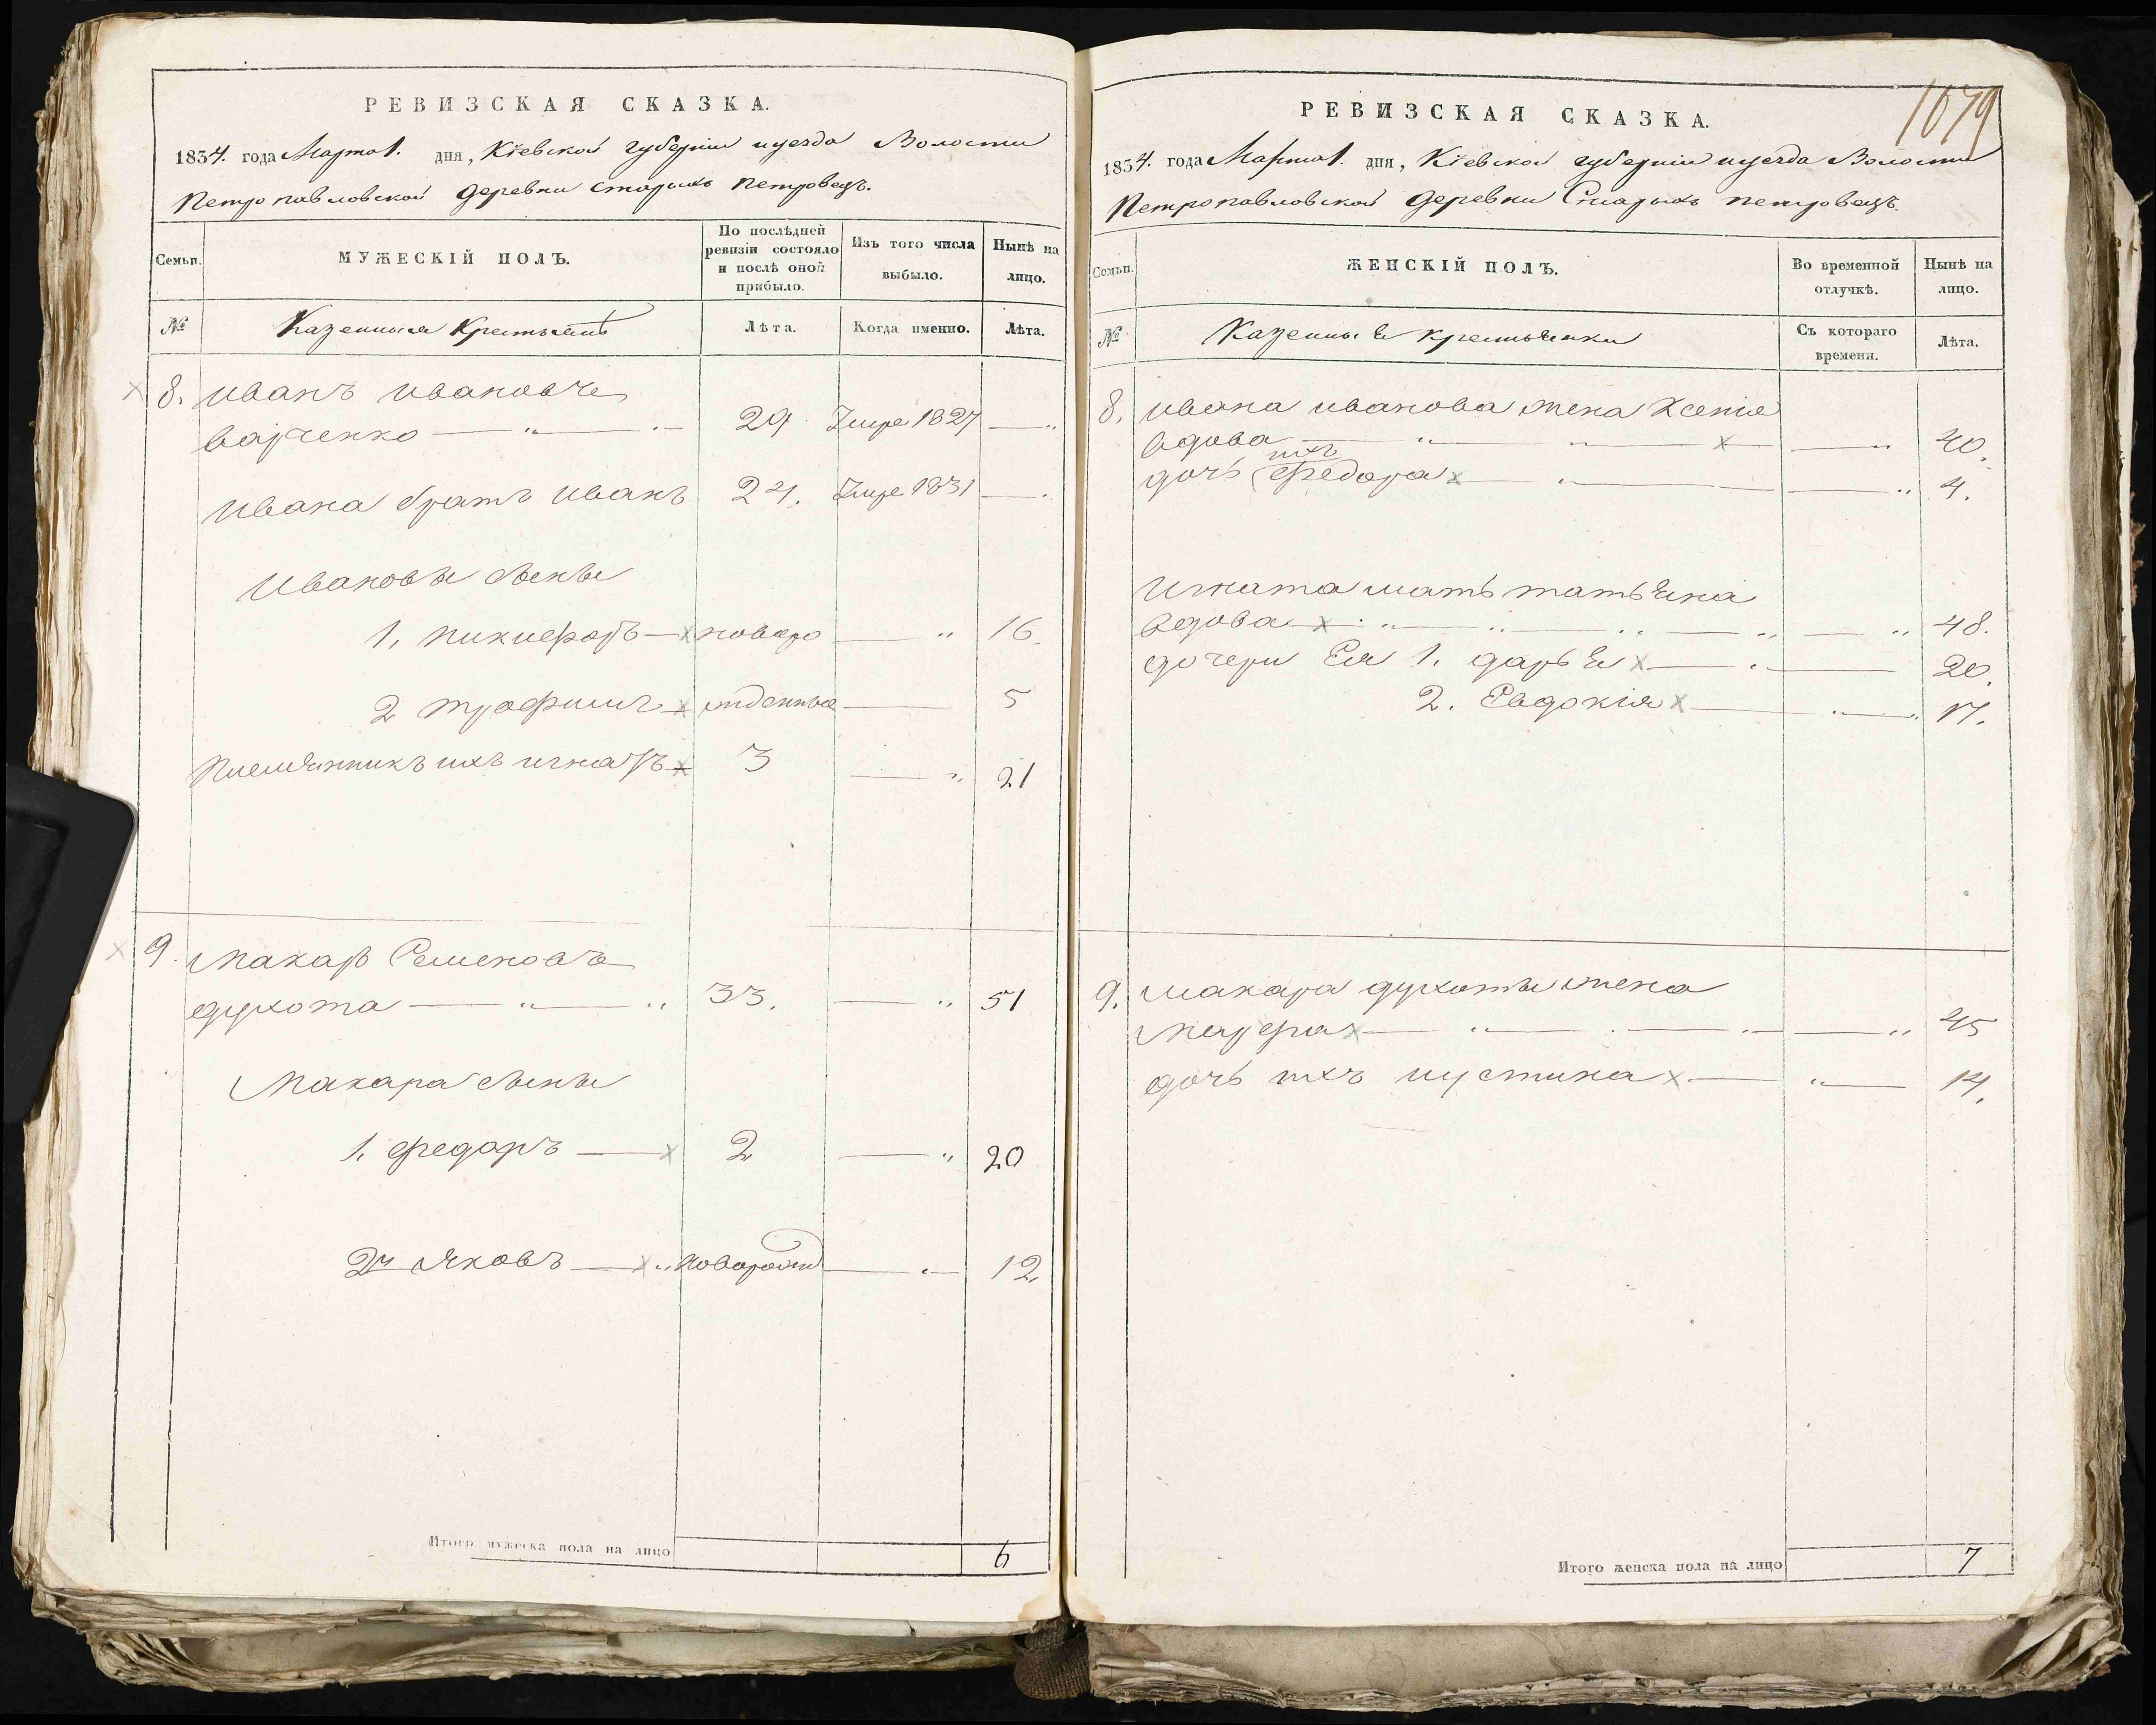 РЕВИЗСКАЯ СКАЗКА.
1834. года Марта 1. дня, Кіевской губерніи уезда Волости
Петропавловской деревни старыхъ петровецъ.
Семьи.
МУЖЕСКІЙ ПОЛЪ.
По послѣдней
ревизіи состояло
и послѣ оной
прибыло.
Изъ того числа
выбыло.
Нынѣ на
лицо.
№
Казенныя Крестьянѣ
Лѣта.
Когда именно.
Лѣта.
8. иванъ ивановъ
29 Умре 1827
ивана братъ иванъ 24. Умре 1831
Ивановы сыны
1. никифоръ новоро 16.
2 трофимъ жденныя 5
племянникъ ихъ игнатъ 3 21
9. Макаръ Семеновъ
духота 33. 51
Макара сыны
1. федоръ 2 20
2й Яковъ новорожд 12.
Итого мужеска пола на лицо 6
1079
РЕВИЗСКАЯ СКАЗКА.
1834. года Марта 1. дня, Кіевской губерніи уезда Волости
Петропавловской деревни Старыхъ петровецъ.
Семьи.
ЖЕНСКІЙ ПОЛЪ.
Во временной
отлучкѣ.
Нынѣ на
лицо.
№
Казенныя крестьянки
Съ котораго
времени.
Лѣта.
8. ивана иванова жена Ксенія
вдова 40.
ихъ
дочь федора 4.
Игната мать татьяна
вдова 48.
дочери Ея 1. дарья 20.
2. Евдокія 17.
9. макара духоты жена
марфа 45
дочь ихъ иустина 14.
Итого женска пола на лицо 7